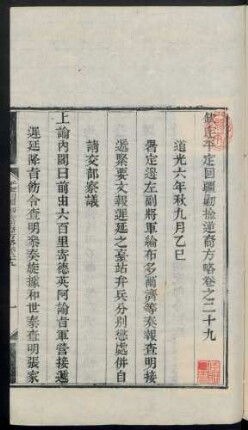 欽定平定回疆勦捦逆裔方略卷之二十九
道光六年秋九月乙巳
署定邊左副將軍綸布多爾濟等奏報查明接
遞緊要文報遲延之臺站弁兵分別懲處併自
請交部察議
上諭內閣曰前由六百里寄德英阿諭旨軍營接遞
遲延降旨飭令查明叅奏旋據和世泰查明張家